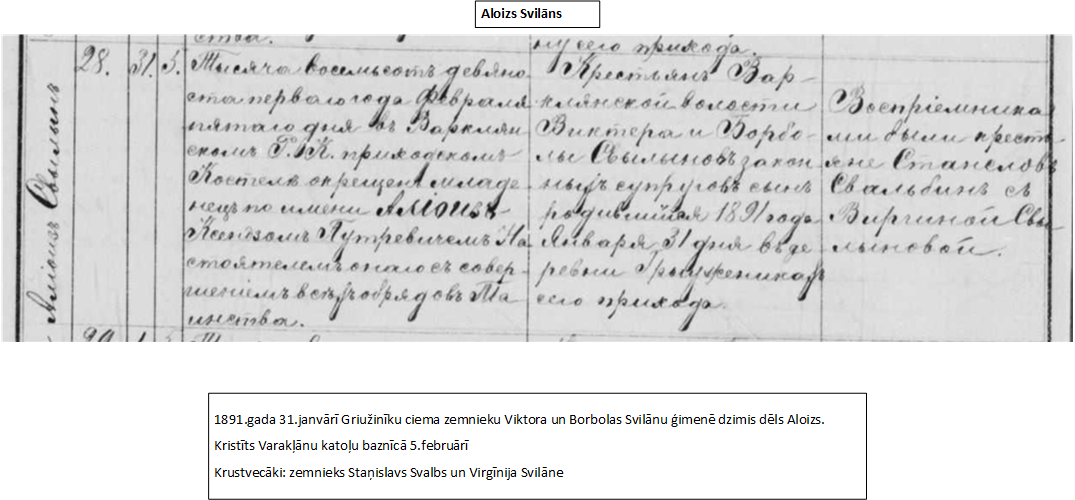 Aloizs Svilāns
ства.
ну сего прихода.
Алоизъ Свилынъ
28.
31.
5.
Тысяча восемьсотъ девяно-
ста перваго года Февраля
пятаго дня въ Варклян
скомъ Р. К. приходскомъ
Костелѣ окрещенъ младе-
нецъ по имени Алоизъ
Ксендзомъ Путревичемъ На
стоятелемъ онаго съ совер-
шеніемъ всѣхъ обрядовъ Та
инства.
Крестьянъ Вар-
клянской волости
Виктера и Борбо-
лы Свылыновъ закон
ныхъ супруговъ сынъ
родившійся 1891 года
Января 31 дня въ де
ревни Грыуженикахъ
сего прихода.
Воспріемника
ми были кресть
яне Станславъ
Свальбинъ съ
Виргиной Свы
лыновой.
29
1
5
1891.gada 31.janvārī Griužinīku ciema zemnieku Viktora un Borbolas Svilānu ģimenē dzimis dēls Aloizs.
Kristīts Varakļānu katoļu baznīcā 5.februārī
Krustvecāki: zemnieks Staņislavs Svalbs un Virgīnija Svilāne